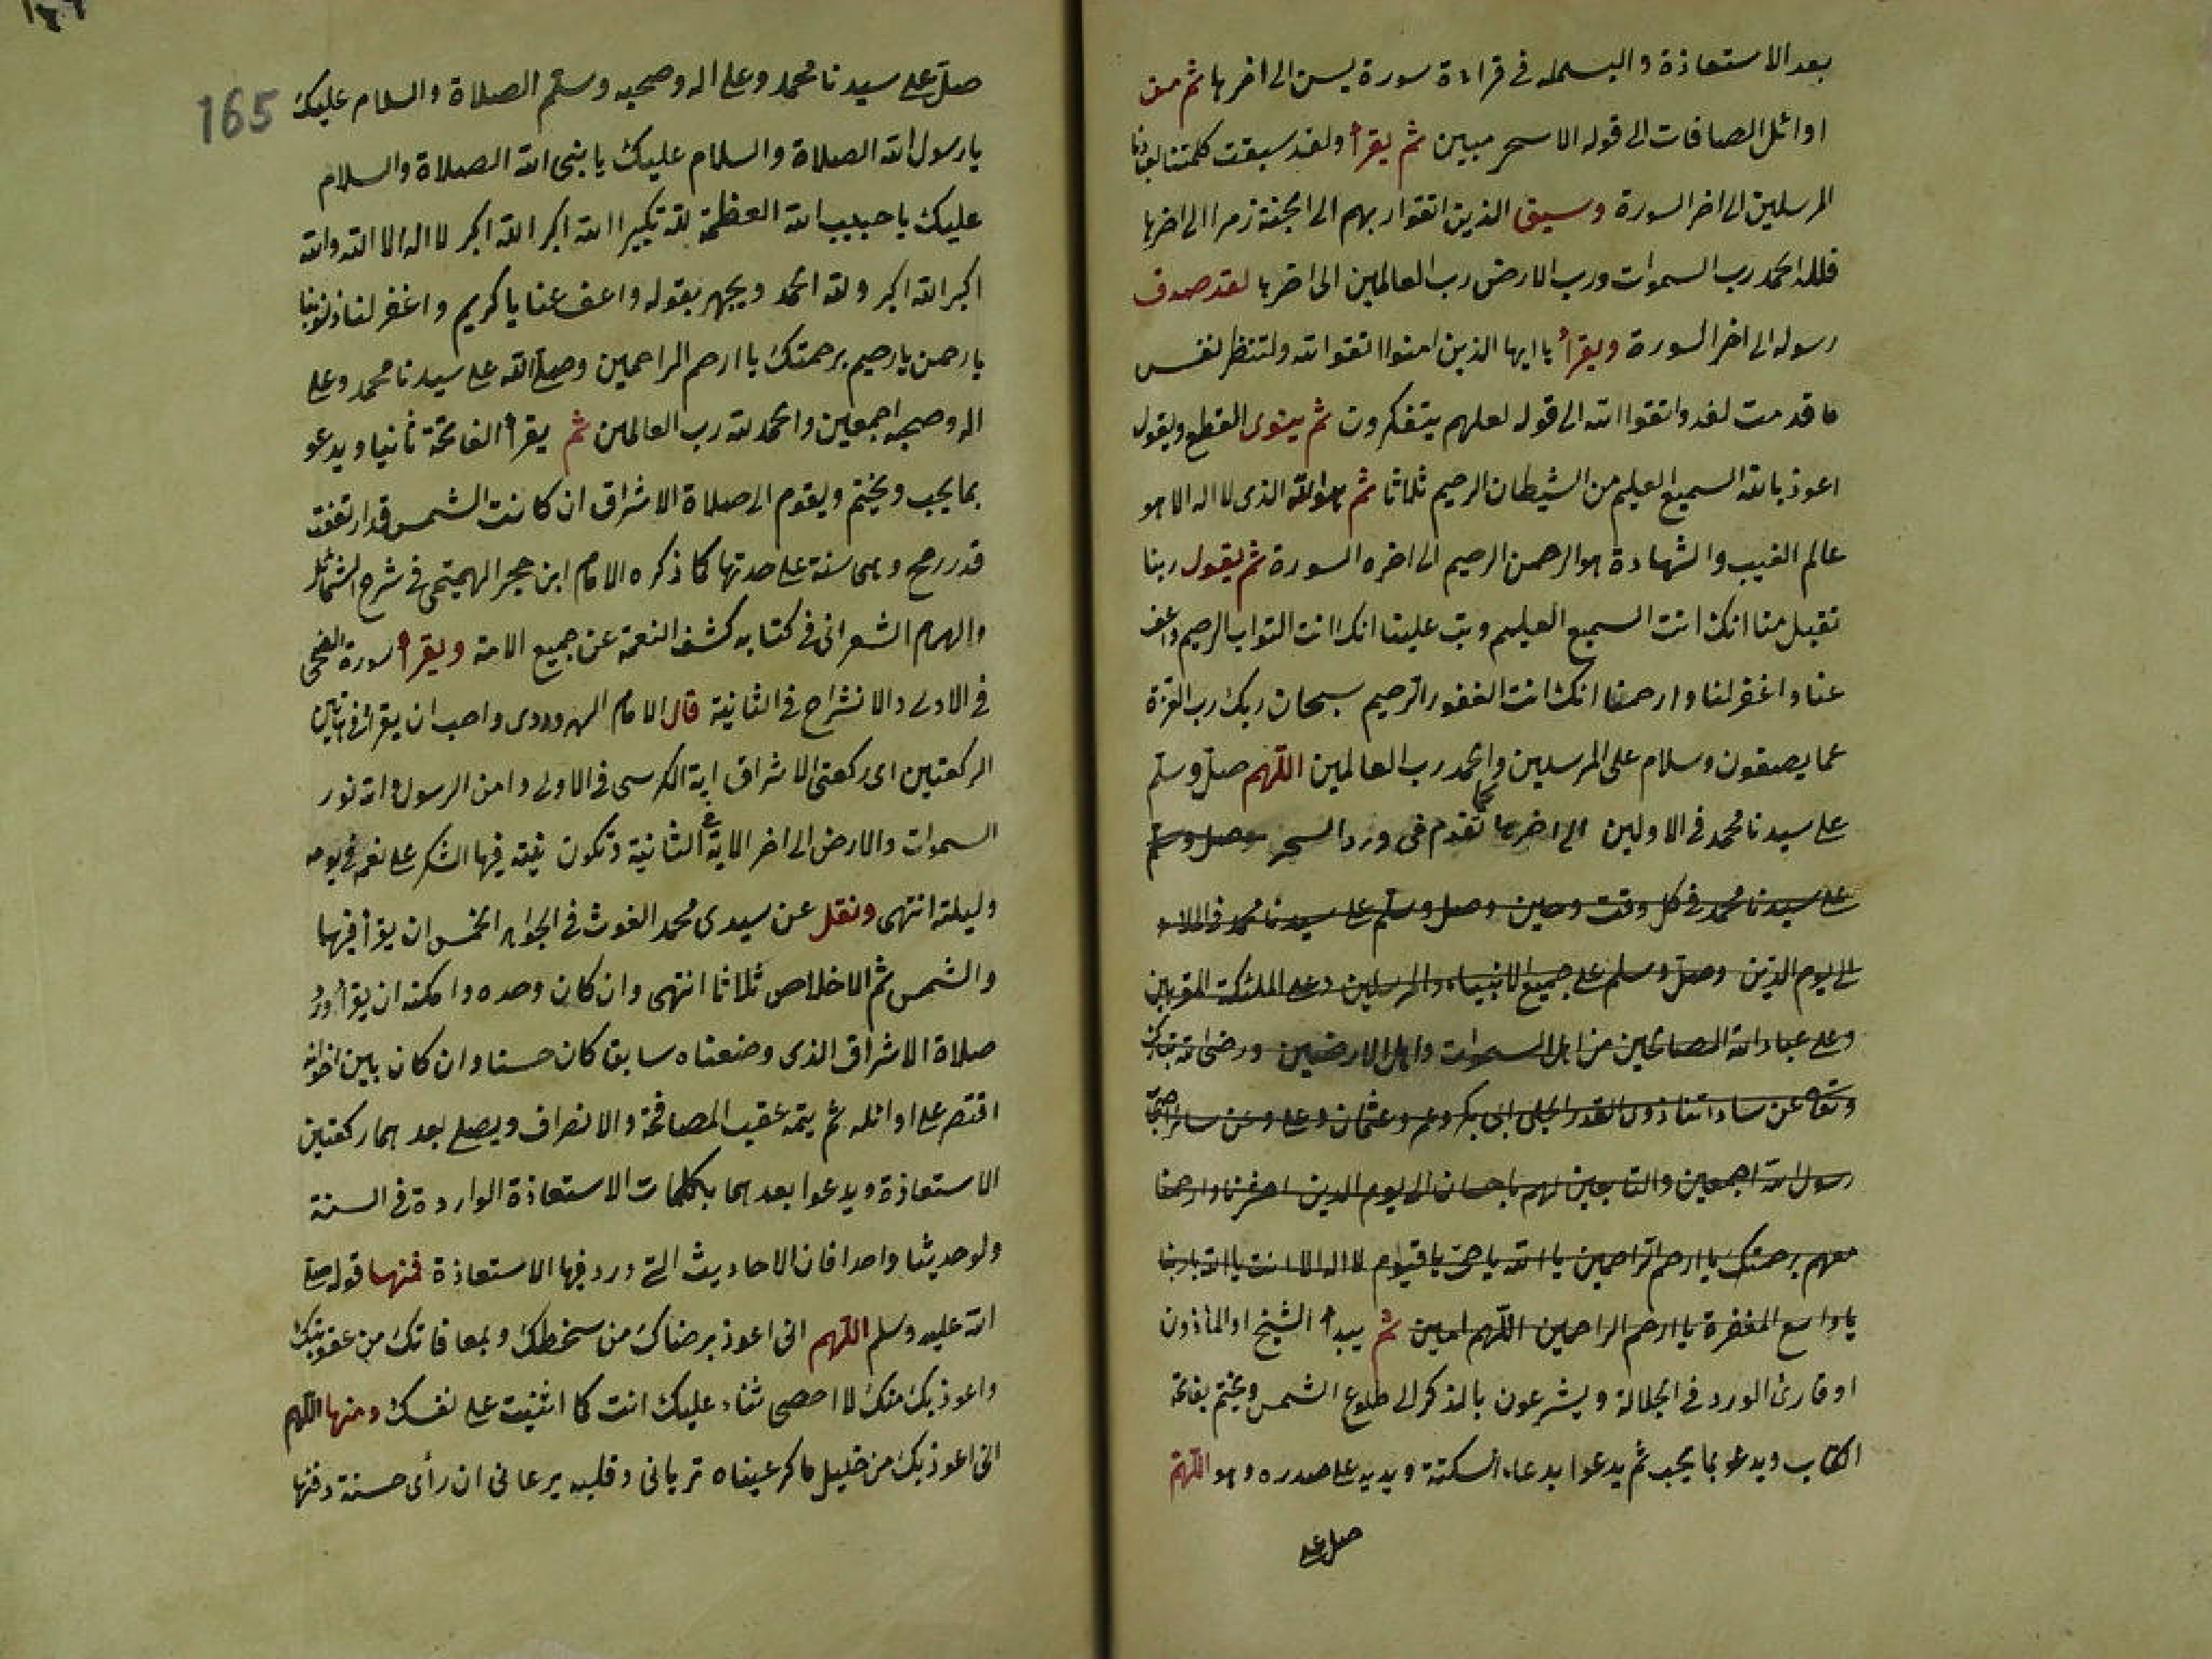 بعد الاستعاذة والبسملة فى قراءة سورة يس الى اخرها ثم من
اوائل الصافات الى قوله الا سحر مبين ثم يقرأ ولقد سبقت كلمتنا لعبادنا
المرسلين الى اخر السورة وسيق الذين اتقوا ربهم الى الجنة زمرا الى اخرها
فلله الحمد رب السموات ورب الارض رب العالمين الى اخرها لقد صدق
رسوله الى اخر السورة ويقرأ يا ايها الذين امنوا اتقوا الله ولتنظر نفس
ما قدمت لغد واتقوا الله الى قوله لعلهم يتفكرون ثم ينوى القطع ويقول
اعوذ بالله السميع العليم من الشيطان الرجيم ثلاثا ثم هو الله الذى لا اله الا هو
عالم الغيب والشهادة هو الرحمن الرحيم الى اخره السورة ثم يقول ربنا
تقبل منا انك انت السميع العليم وتب علينا انك انت التواب الرحيم واعف
عنا واغفر لنا وارحمنا انك انت الغفور الرحيم سبحان ربك رب العزة
عما يصفون وسلام على المرسلين والحمد رب العالمين اللهم صل وسلم
على سيدنا محمد فى الاولين الى اخرها كما تقدم فى ورد السحر وصل وسلم
على سيدنا محمد فى كل وقت وحين وصل وسلم على سيدنا محمد فى الملاء
الى يوم الدين وصل وسلم على جميع الانبياء والمرسلين وعلى الملئكة المقربين
وعلى عباد الله الصالحين من اهل السموات واهل الارضين ورضى الله تبارك
وتعالى عن ساداتنا ذوى القدر الجلى ابى بكر وعمر وعثمان وعلى وعن سائر اصحاب
رسول الله اجمعين والتابعين لهم باحسان الى يوم الدين احشرنا وارحمنا
معهم برحمتك يا ارحم الراحمين يا الله يا حى يا قيوم لا اله الا انت يا الله يا ربنا
يا واسع المغفرة يا ارحم الراحمين اللهم امين ثم يبدأ الشيخ او المأذون
او قارئ الورد فى الجلالة ويشرعون بالذكر الى طلوع الشمس ويختم بفاتحة
الكتاب ويدعو بما يحب ثم يدعوا بدعاء السكتة ويديه على صدره وهو اللهم
صل على
165
صل على سيدنا محمد وعلى اله وصحبه وسلم الصلاة والسلام عليك
يا رسول الله الصلاة والسلام عليك يا نبى الله الصلاة والسلام
عليك يا حبيب الله العظمة لله تكبيرا الله اكبر الله اكبر لا اله الا الله والله
اكبر الله اكبر ولله الحمد ويجهر بقوله واعف عنا يا كريم واغفر لنا ذنوبنا
يا رحمن يا رحيم برحمتك يا ارحم الراحمين وصلى الله على سيدنا محمد وعلى
اله وصحبه اجمعين والحمد لله رب العالمين ثم يقرأ الفاتحة ثانيا ويدعو
بما يحب ويختم ويقوم الى صلاة الاشراق ان كانت الشمس قد ارتفعت
قدر رمح وهى سنة على حدتها كما ذكره الامام ابن حجر الهيتمى فى شرح الشمائل
والهمام الشعرانى فى كتابه كشف الغمة عن جميع الامة ويقرأ سورة الضحى
فى الاولى والانشراح فى الثانية قال الامام السهروردى واحب ان يقرأ فى هاتين
الركعتين اى ركعتى الاشراق اية الكرسى فى الاولى وامن الرسول والله نور
السموات والارض الى اخر الاية فى الثانية وتكون نيته فيها الشكر على نعم فى يومه
وليلته انتهى ونقل عن سيدى محمد الغوث فى الجواهر الخمس ان يقرأ فيهما
والشمس ثم الاخلاص ثلاثا انتهى وان كان وحده وامكنه ان يقرأ ورد
صلاة الاشراق الذى وضعناه سابق كان حسنا وان كان بين اخوانه
اقتصر على اوائله ثم يتمه عقيب المصافحة والانصراف ويصلى بعدهما ركعتين
الاستعاذة ويدعوا بعدهما بكلمات الاستعاذة الواردة فى السنة
ولو حديثا واحدا فان الاحاديث التى ورد فيها الاستعاذة فمنها قوله صلى
الله عليه وسلم اللهم انى اعوذ برضاك من سخطك وبمعافاتك من عقوبتك
واعوذ بك منك لا احصى ثناء عليك انت كما اثنيت على نفسك ومنها اللهم
انى اعوذ بك من خليل ماكر عيناه ترياني وقلبه يرعانى ان رأى حسنة دفنها